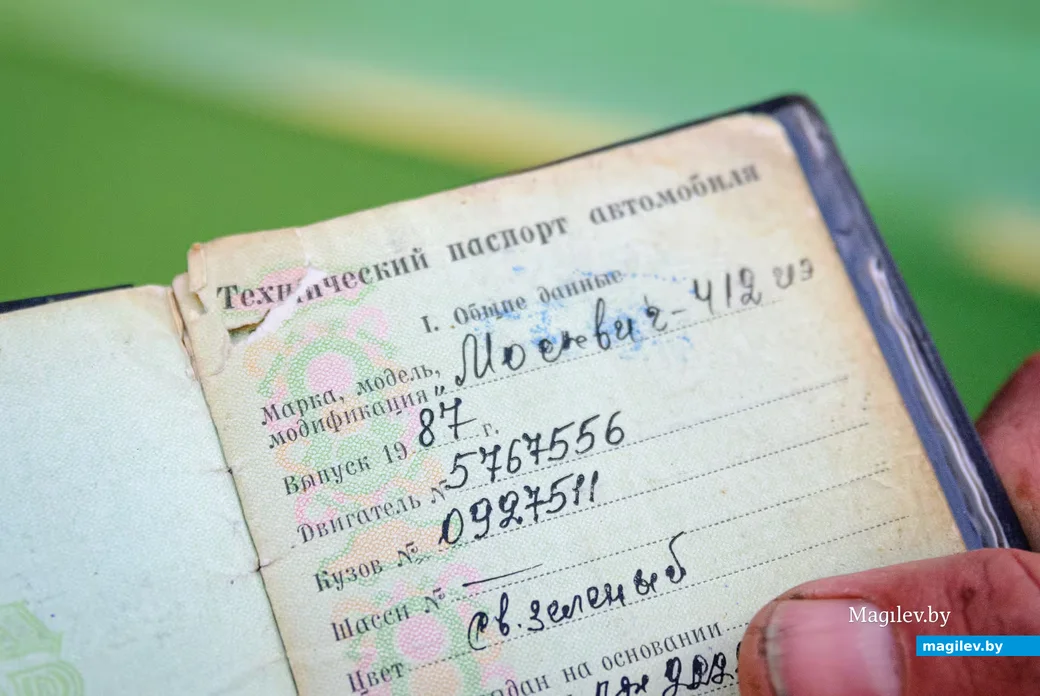 Технический паспорт автомобиля
I. Общие данные
Марка, модель,
модификация „Москвич-412 иэ
Выпуск 1987 г.
Двигатель № 5767556
Кузов № 0927511
Шасси № —
Цвет св. зеленый
на основании
Magilev.by
magilev.by